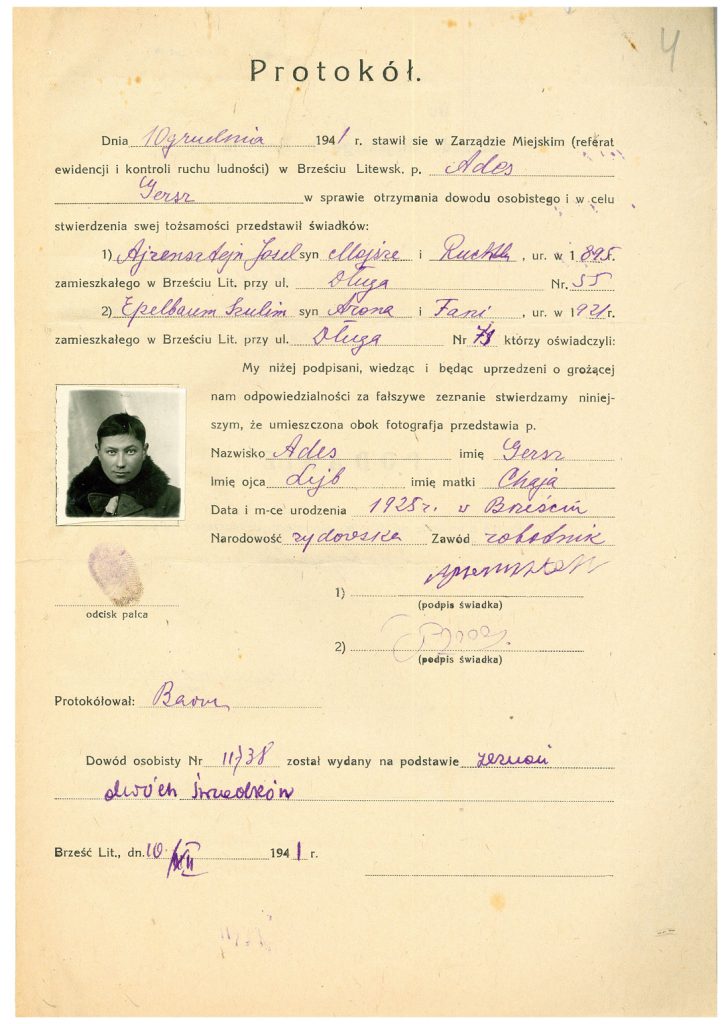 4
Protokół.
Dnia 10 grudnia 1941 r. stawił sie w Zarządzie Miejskim (referat
ewidencji i kontroli ruchu ludności) w Brześciu Litewsk. p. Ades
Gersz w sprawie otrzymania dowodu osobistego i w celu
stwierdzenia swej tożsamości przedstawił świadków:
1) Ajzensztejn Josel syn Mojsze i Ruchla, ur. w 1895 r.
zamieszkałego w Brześciu Lit. przy ul. Długa Nr. 55
2) Epelbaum Szulim syn Arona i Fani, ur. w 1921 r.
zamieszkałego w Brześciu Lit. przy ul. Długa Nr którzy oświadczyli:
My niżej podpisani, wiedząc i będąc uprzedzeni o grożącej
nam odpowiedzialności za fałszywe zeznanie stwierdzamy niniej-
szym, że umieszczona obok fotografja przedstawia p.
Nazwisko Ades imię Gersz
Imię ojca Lejb imię matki Chaja
Data i m-ce urodzenia 1925 r. w Brześciu
Narodowość żydowska Zawód robotnik
1)
(podpis świadka)
odcisk palca
2)
(podpis świadka)
Protokółował:
Dowód osobisty Nr 11738 został wydany na podstawie zeznań
dwóch świadków
Brześć Lit., dn. 10/XII 1941 r.